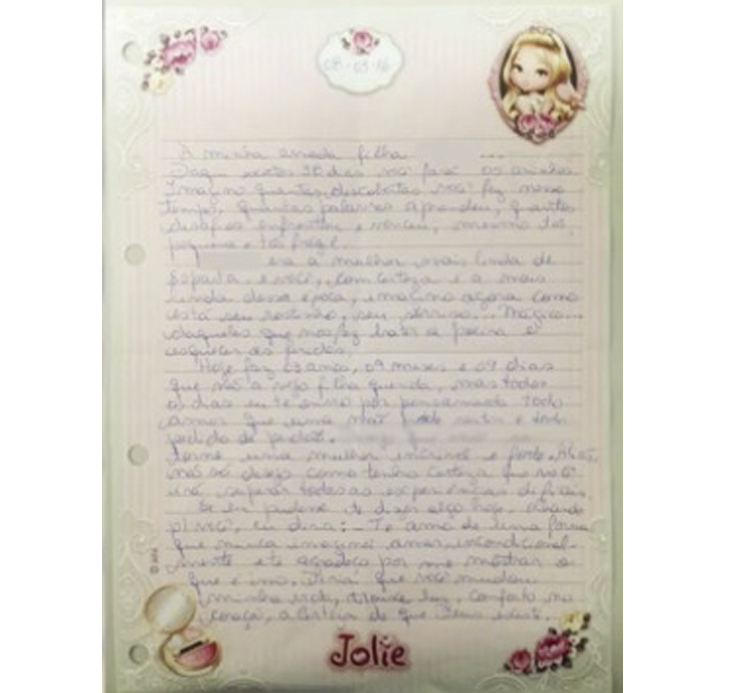 08-03-16
A minha amada filha ...
Daqui exatos 38 dias você fará 05 aninhos.
Imagino quantas descobertas você fez nesse
tempo, quantas palavras aprendeu, quantos
desafios enfrentou e venceu, mesmo tão
pequena e tão frágil.
era a mulher mais linda de
e você, com certeza é a mais
linda dessa época, imagino agora como
está seu rostinho, seu sorriso... Mágico...
daqueles que nos faz bater a
esquecer as
Hoje faz 03 anos, 09 meses e 09 dias
que não a vejo filha querida, mas todos
os dias eu te envio por pensamento todo
amor que uma mãe pode sentir e
pedido de perdão.
torne uma mulher incrível e forte. Aliás,
não só desejo como tenho certeza que você
irá superar todas as experiências difíceis.
Se eu pudesse te dizer algo hoje, olhando
p/ você, eu diria: - Te amo de uma forma
que nunca imaginei amar, incondicional-
mente e te agradeço por me mostrar o
que é isso. Diria que você mudou
minha vida, trouxe luz, conforto no
coração, a certeza de que Deus existe.
Jolie